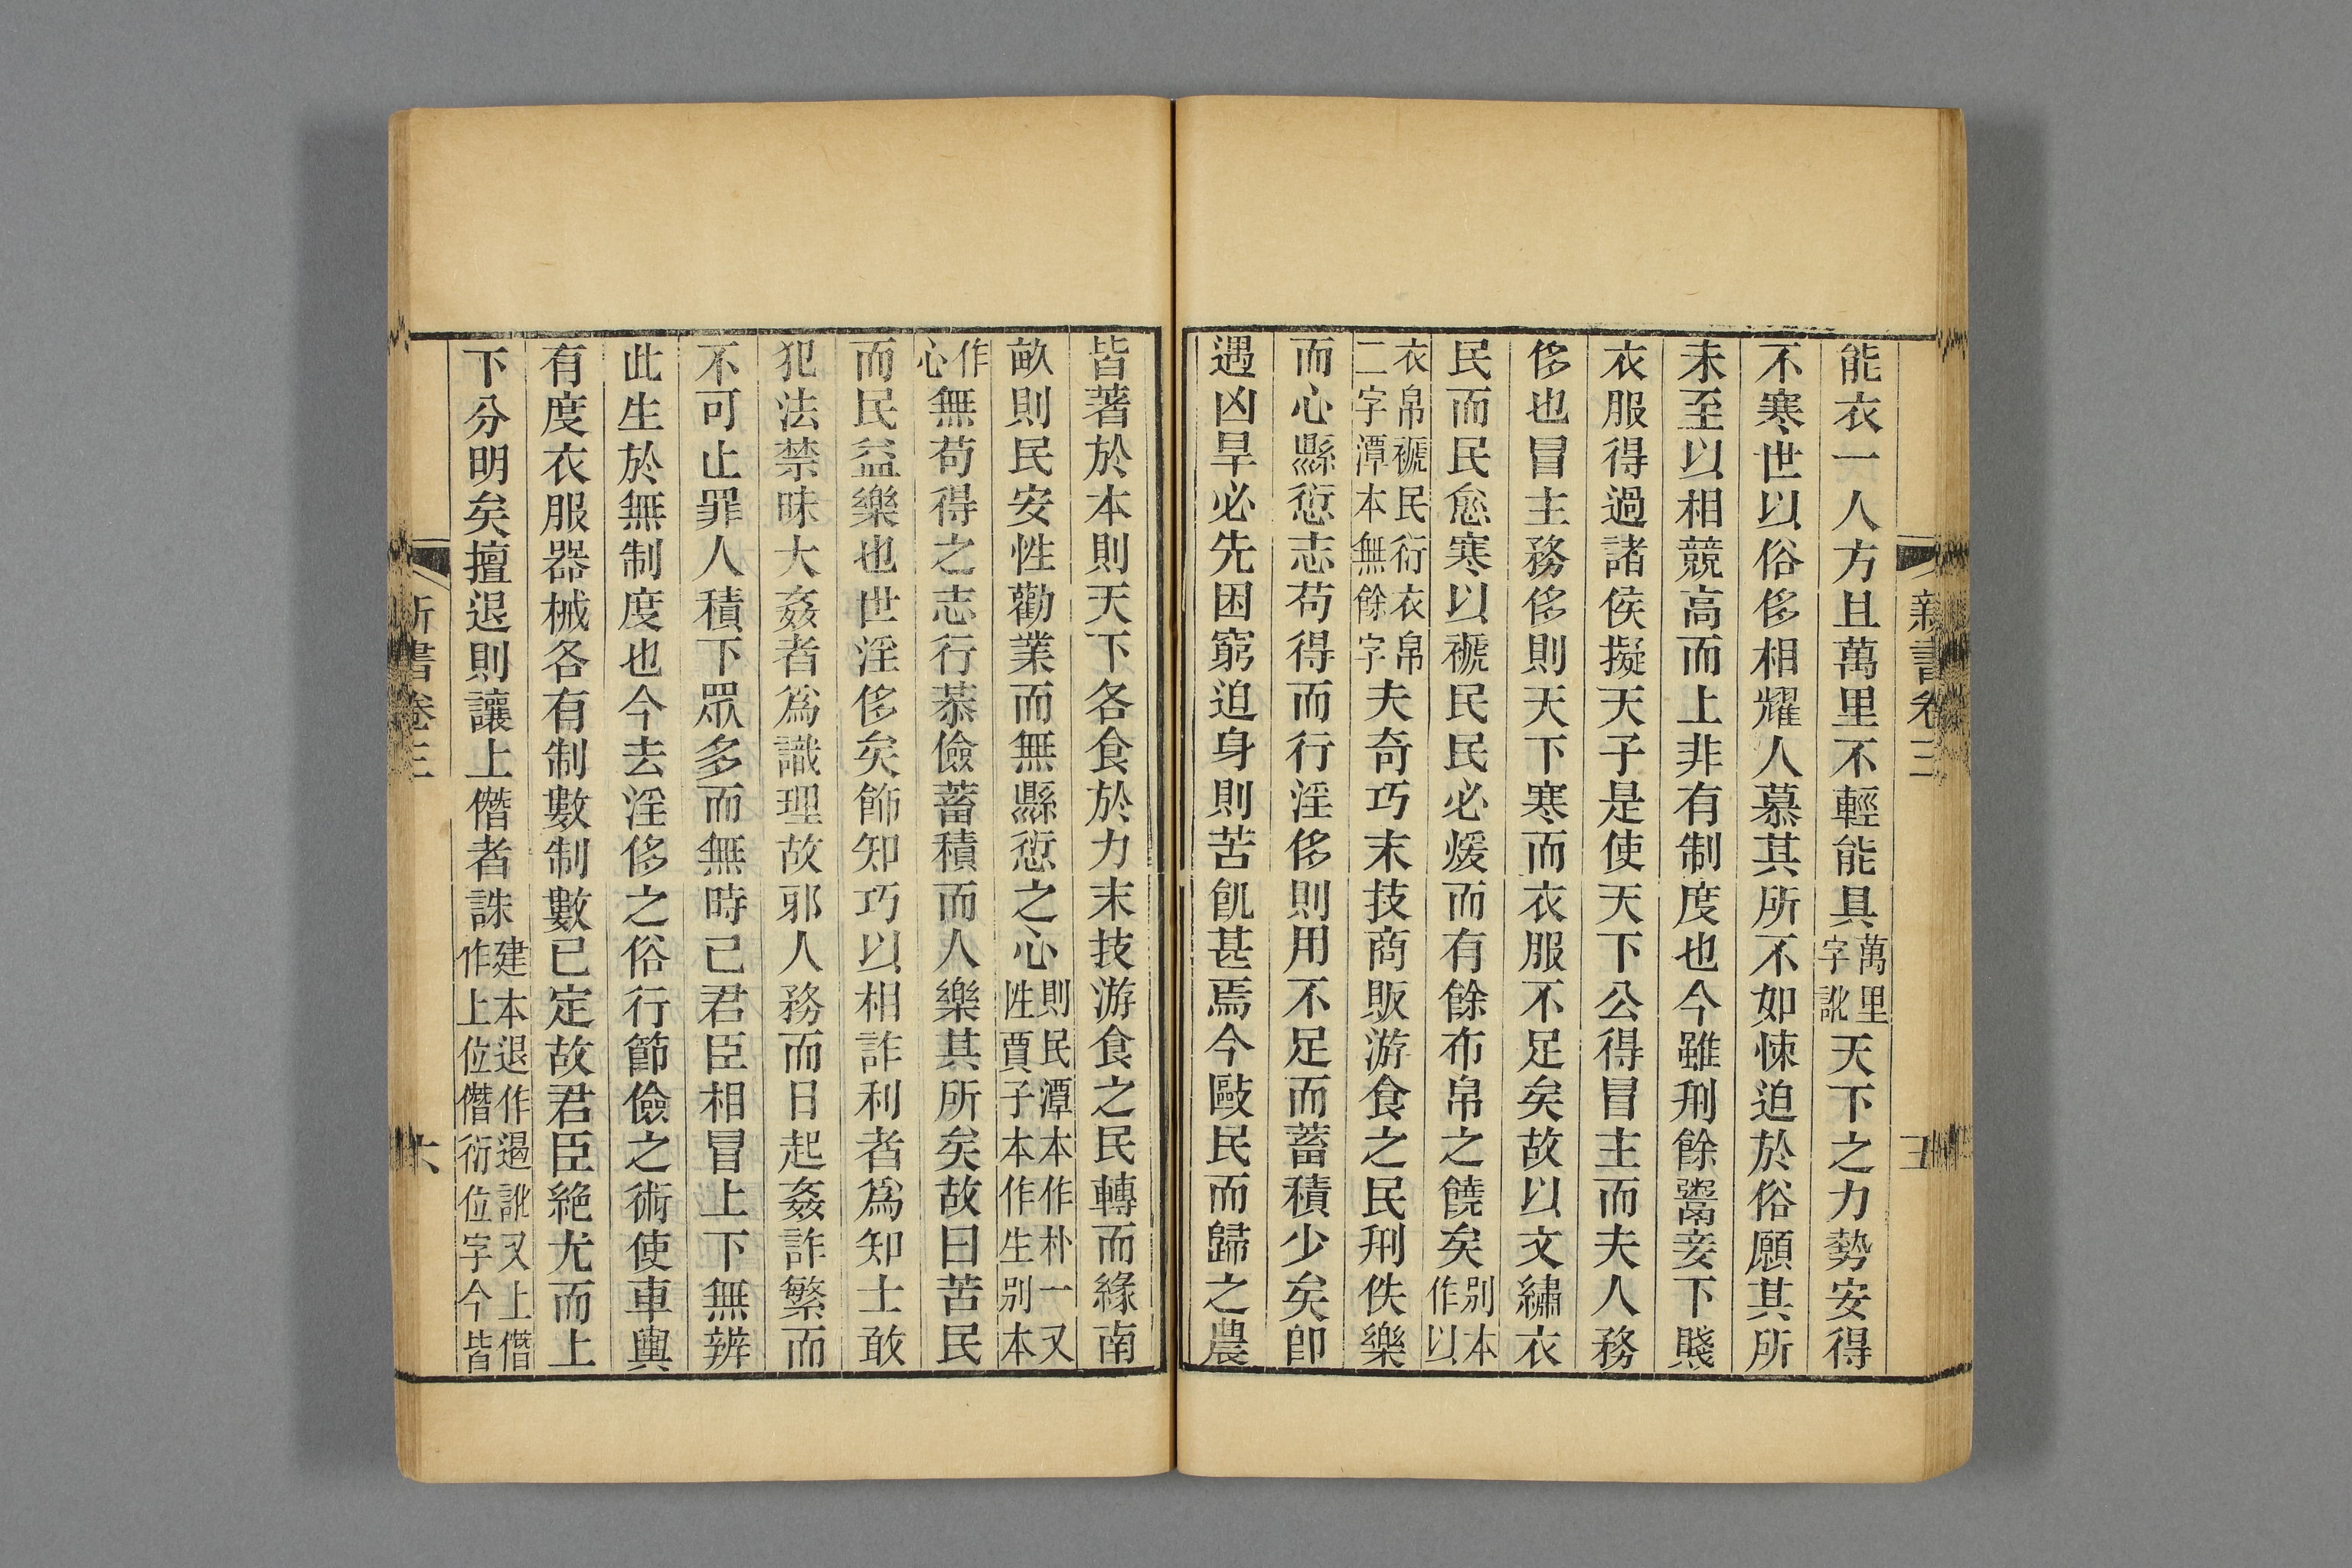 新書卷三
五
能衣一人方且萬里不輕能具萬里字訛天下之力勢安得
不寒世以俗侈相耀人慕其所不如悚迫於俗願其所
未至以相競高而上非有制度也今雖刑餘鬻妾下賤
衣服得過諸侯擬天子是使天下公得冒主而夫人務
侈也冒主務侈則天下寒而衣服不足矣故以文繡衣
民而民愈寒以褫民民必煖而有餘布帛之饒矣别本作以
衣帛褫民衍衣帛二字潭本無餘字夫奇巧末技商販游食之民刑佚樂
而心縣愆志苟得而行淫侈則用不足而蓄積少矣卽
遇凶旱必先困窮迫身則苦飢甚焉今敺民而歸之農
皆著於本則天下各食於力末技游食之民轉而緣南
畝則民安性勸業而無縣愆之心則民潭本作朴一又性賈子本作生别本
作心無苟得之志行恭儉蓄積而人樂其所矣故曰苦民
而民益樂也世淫侈矣飾知巧以相詐利者爲知士敢
犯法禁昧大姦者爲識理故邪人務而日起姦詐繁而
不可止罪人積下眾多而無時已君臣相冒上下無辨
此生於無制度也今去淫侈之俗行節儉之術使車輿
有度衣服器械各有制數制數已定故君臣絶尤而上
下分明矣擅退則讓上僭者誅建本退作過訛又上僭作上位僭衍位字今皆
新書卷三
六